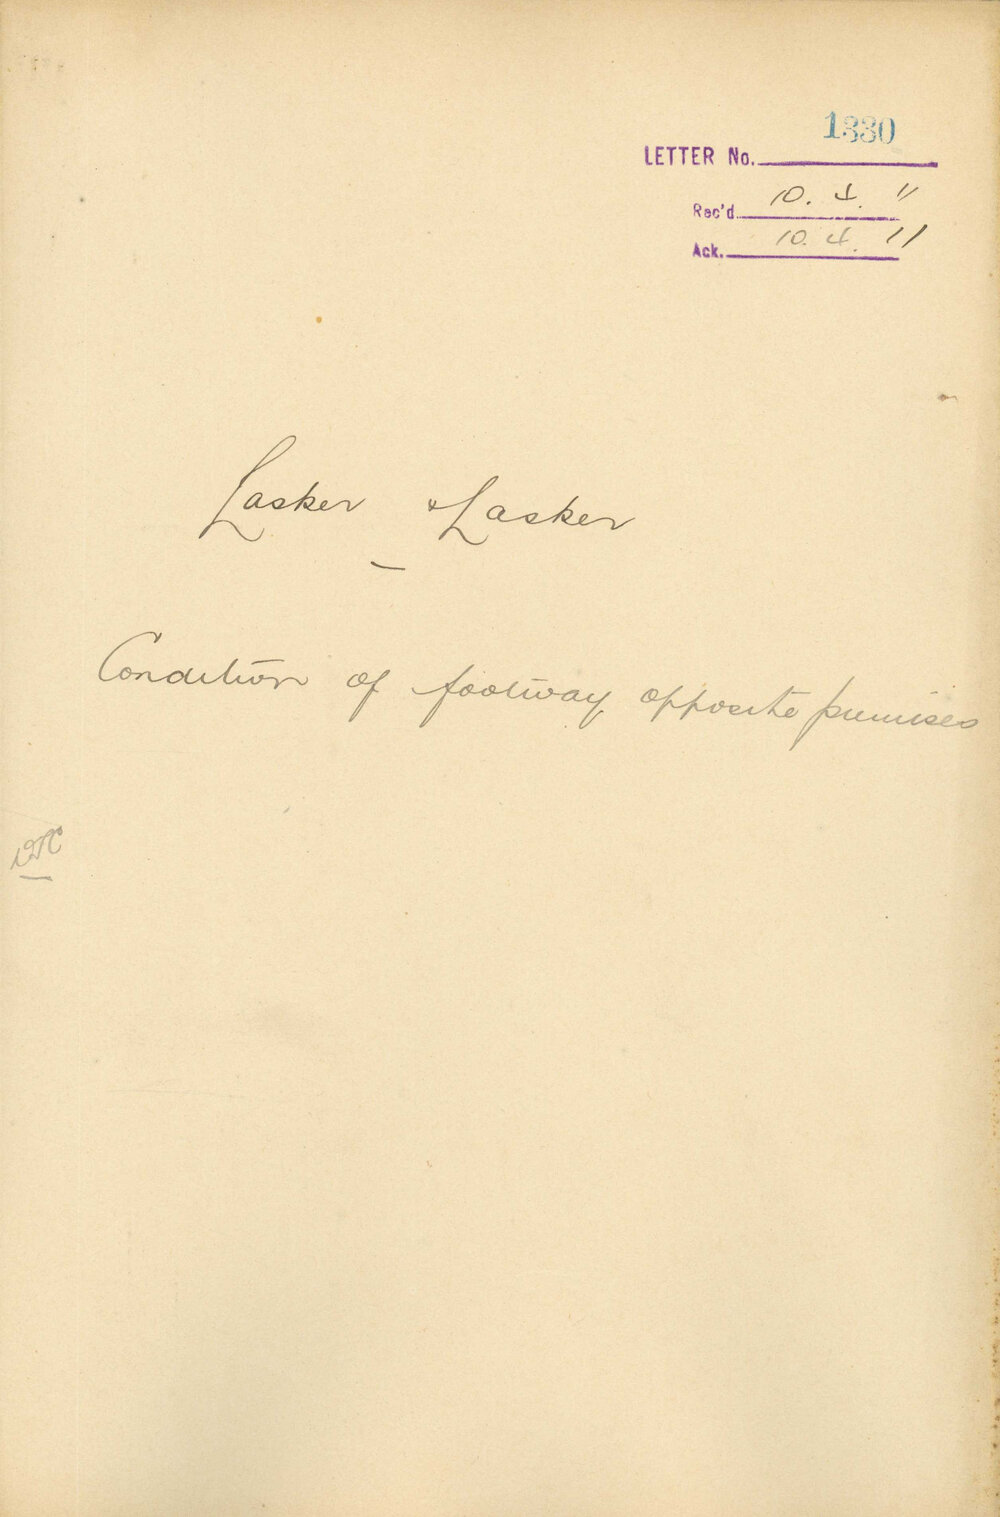 1330
LETTER No.
Rec'd 10. 4. 11
Ack. 10. 4. 11
Lasker & Lasker
Condition of footway opposite premises